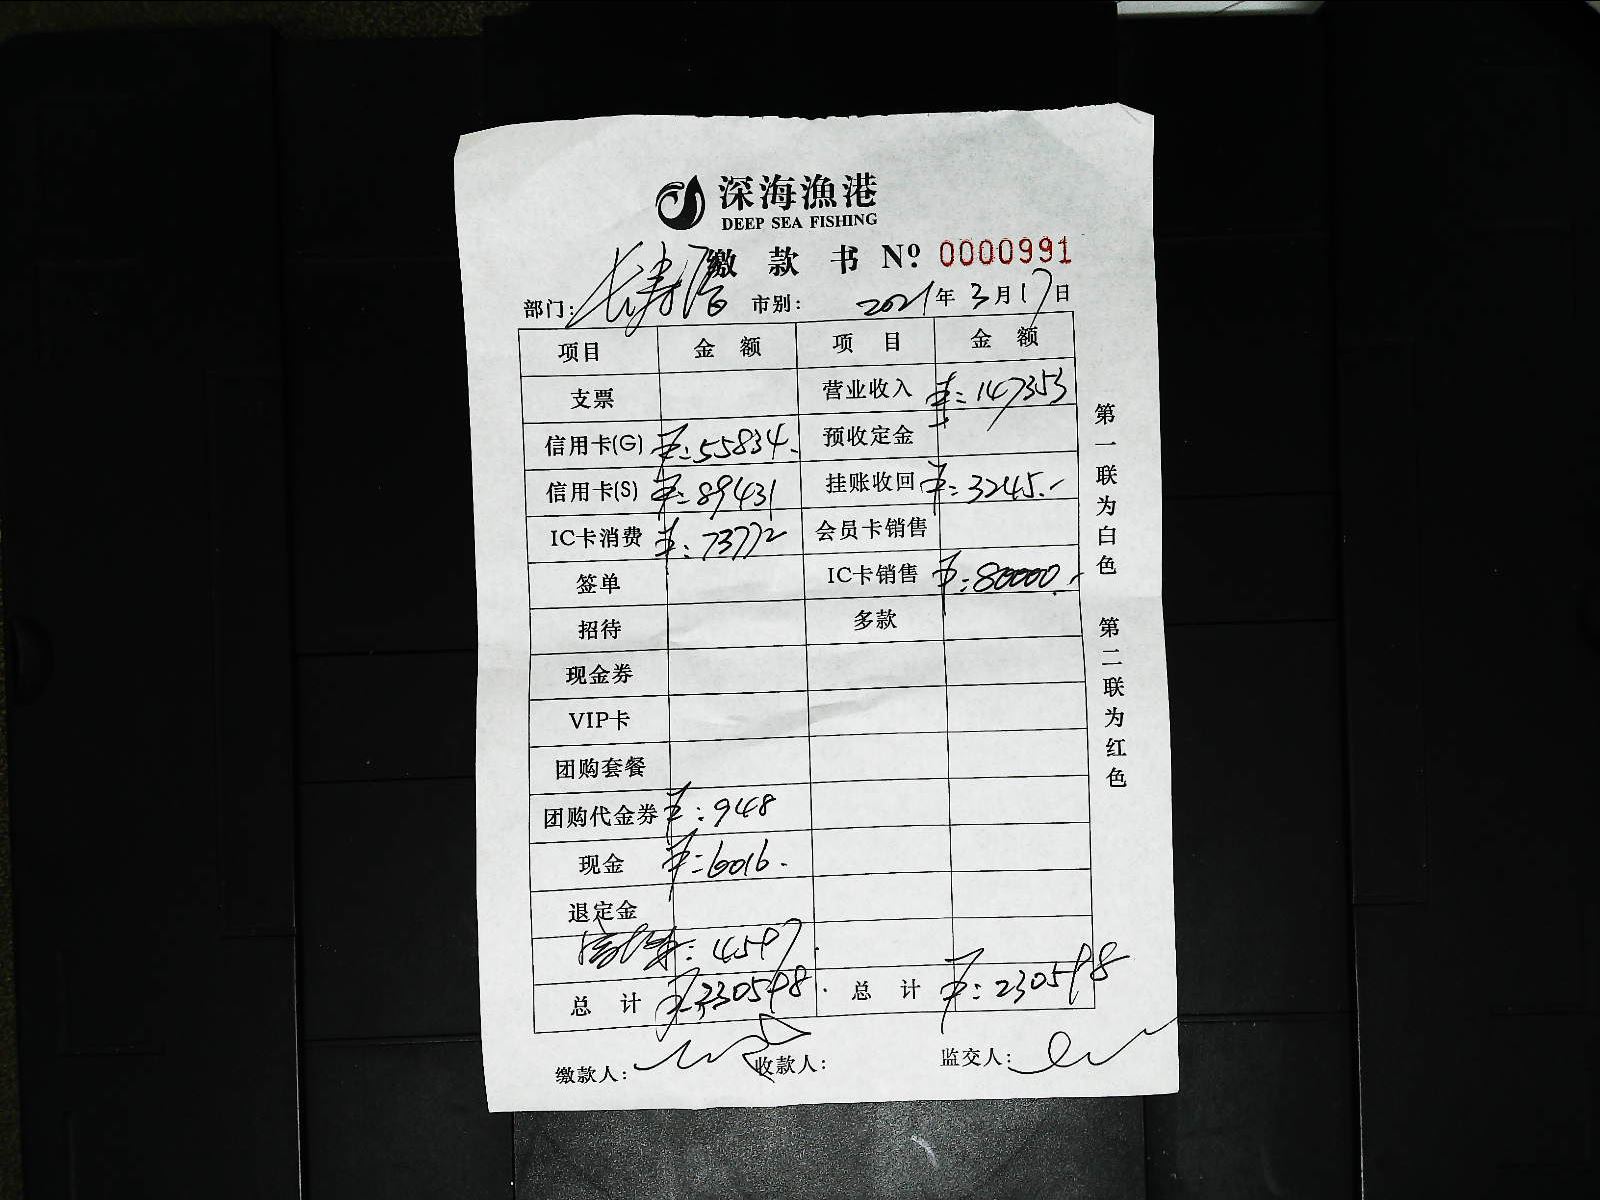 深海漁港
DEEP SEA FISHING
缴款书 Nº 0000991
部门: 长寿 市别: 2021年 3月17日
项目 金额 项目 金额
支票 营业收入 ¥:147353
信用卡(G) ¥:55834. 预收定金
信用卡(S) ¥:89431 挂账收回 ¥:3245.-
IC卡消费 ¥:73772 会员卡销售
签单 IC卡销售 ¥:80000.-
招待 多款
现金券
VIP卡
团购套餐
团购代金券 ¥:948
现金 ¥:6016.
退定金
¥:4597.
总计 ¥:230598. 总计 ¥:230598
缴款人: 收款人: 监交人:
第一联为白色 第二联为红色